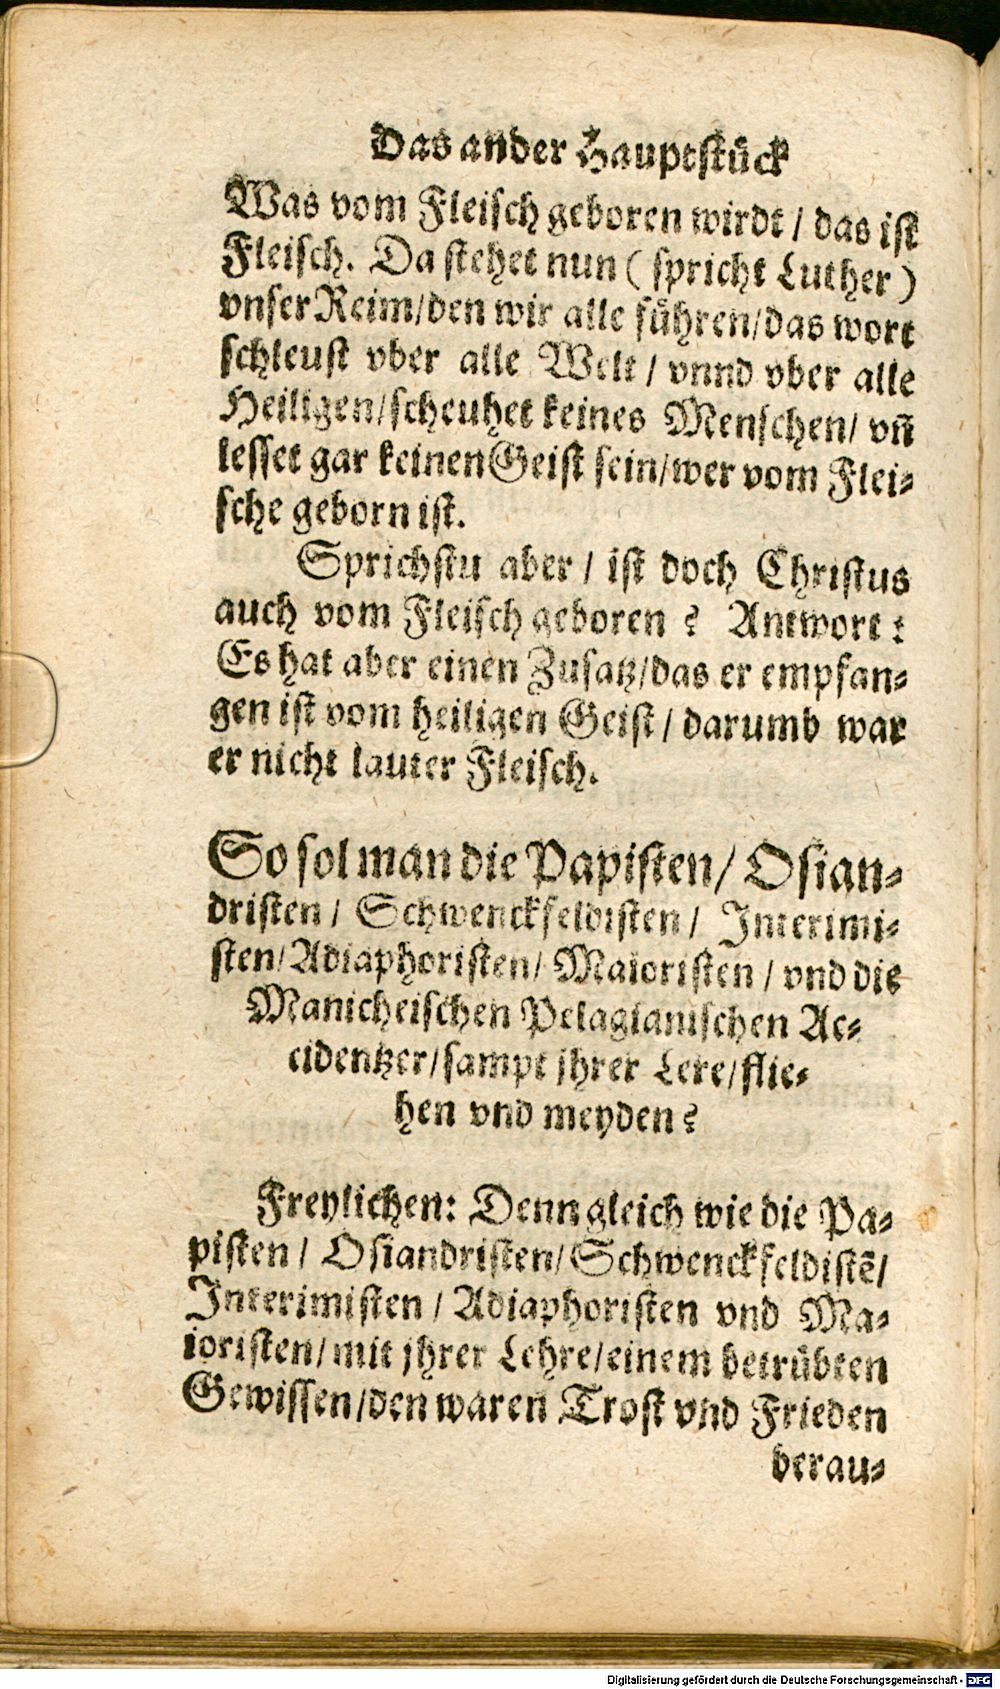 Das ander Hauptstück
Was vom Fleisch geboren wirdt / das ist
Fleisch. Da stehet nun ( spricht Luther )
vnser Reim/den wir alle führen/das wort
schleust vber alle Welt / vnnd vber alle
Heiligen/scheuhet keines Menschen/ vn̄
lesset gar keinen Geist sein/wer vom Flei-
sche geborn ist.
Sprichstu aber / ist doch Christus
auch vom Fleisch geboren ? Antwort :
Es hat aber einen Zusatz/das er empfan-
gen ist vom heiligen Geist / darumb war
er nicht lauter Fleisch.
So sol man die Papisten/ Osian-
dristen / Schwenckfeldisten / Interimi-
sten/Adiaphoristen/ Maioristen / vnd die
Manicheischen Pelagianischen Ac-
cidentzer/sampt jhrer Lere/flie-
hen vnd meyden?
Freylichen: Denn gleich wie die Pa-
pisten / Osiandristen/Schwenckfeldistē/
Interimisten / Adiaphoristen vnd Ma-
ioristen/mit jhrer Lehre/einem betrübten
Gewissen/den waren Trost vnd Frieden
berau-
Digitalisierung gefördert durch die Deutsche Forschungsgemeinschaft - DFG